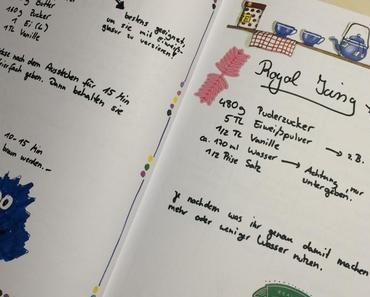 180g Zucker
1 Ei (L)
1 TL Vanille
bestens geeignet,
um sie mit Eiweiß-
glasur zu verzieren!
nach dem Ausstechen für 15 Min
geben. Dann behalten sie
10-15 Min
braun werden.
Royal Icing
480g Puderzucker
5 TL Eiweißpulver → z.B.
1/2 TL Vanille
ca. 170 ml Wasser → Achtung, nur
untergeben.
1/2 Prise Salz
Je nachdem was ihr genau damit machen
mehr oder weniger Wasser nutzen.